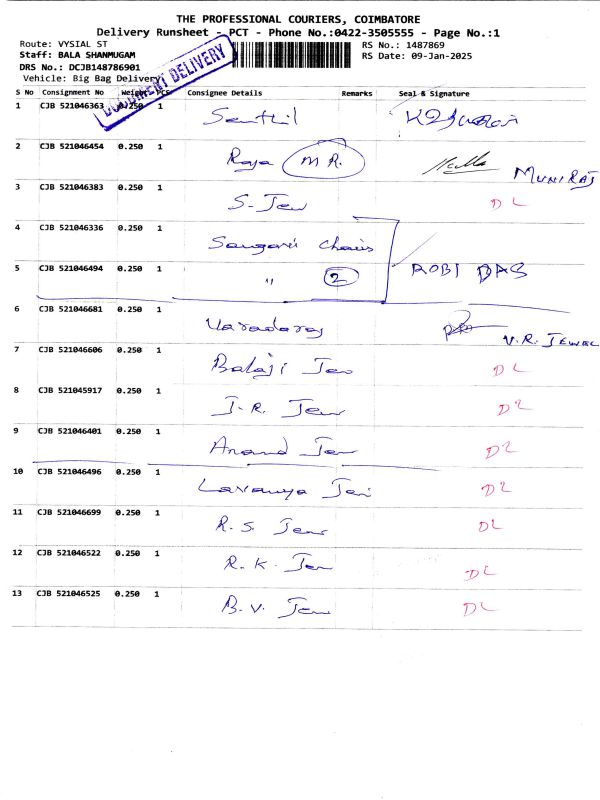 THE PROFESSIONAL COURIERS, COIMBATORE
Delivery Runsheet - PCT - Phone No.:0422-3505555 - Page No.:1
Route: VYSIAL ST RS No.: 1487869
Staff: BALA SHANMUGAM RS Date: 09-Jan-2025
DRS No.: DCJB148786901
Vehicle: Big Bag Delivery
DOCUMENT DELIVERY
S No Consignment No Weight PCS Consignee Details Remarks Seal & Signature
1 CJB 521046363 0.250 1 Senthil
2 CJB 521046454 0.250 1 Raja M R. MUNIRAJ
3 CJB 521046383 0.250 1 S. Jew DL
4 CJB 521046336 0.250 1 Chains
5 CJB 521046494 0.250 1 " 2 ROBI DAS
6 CJB 521046681 0.250 1 Varadaraj V.R. JEWEL
7 CJB 521046606 0.250 1 Balaji Jew DL
8 CJB 521045917 0.250 1 J.R. Jew DL
9 CJB 521046401 0.250 1 Anand Jew DL
10 CJB 521046496 0.250 1 Lavanya Jew DL
11 CJB 521046699 0.250 1 R.S. Jew DL
12 CJB 521046522 0.250 1 R.K. Jew DL
13 CJB 521046525 0.250 1 B.V. Jew DL